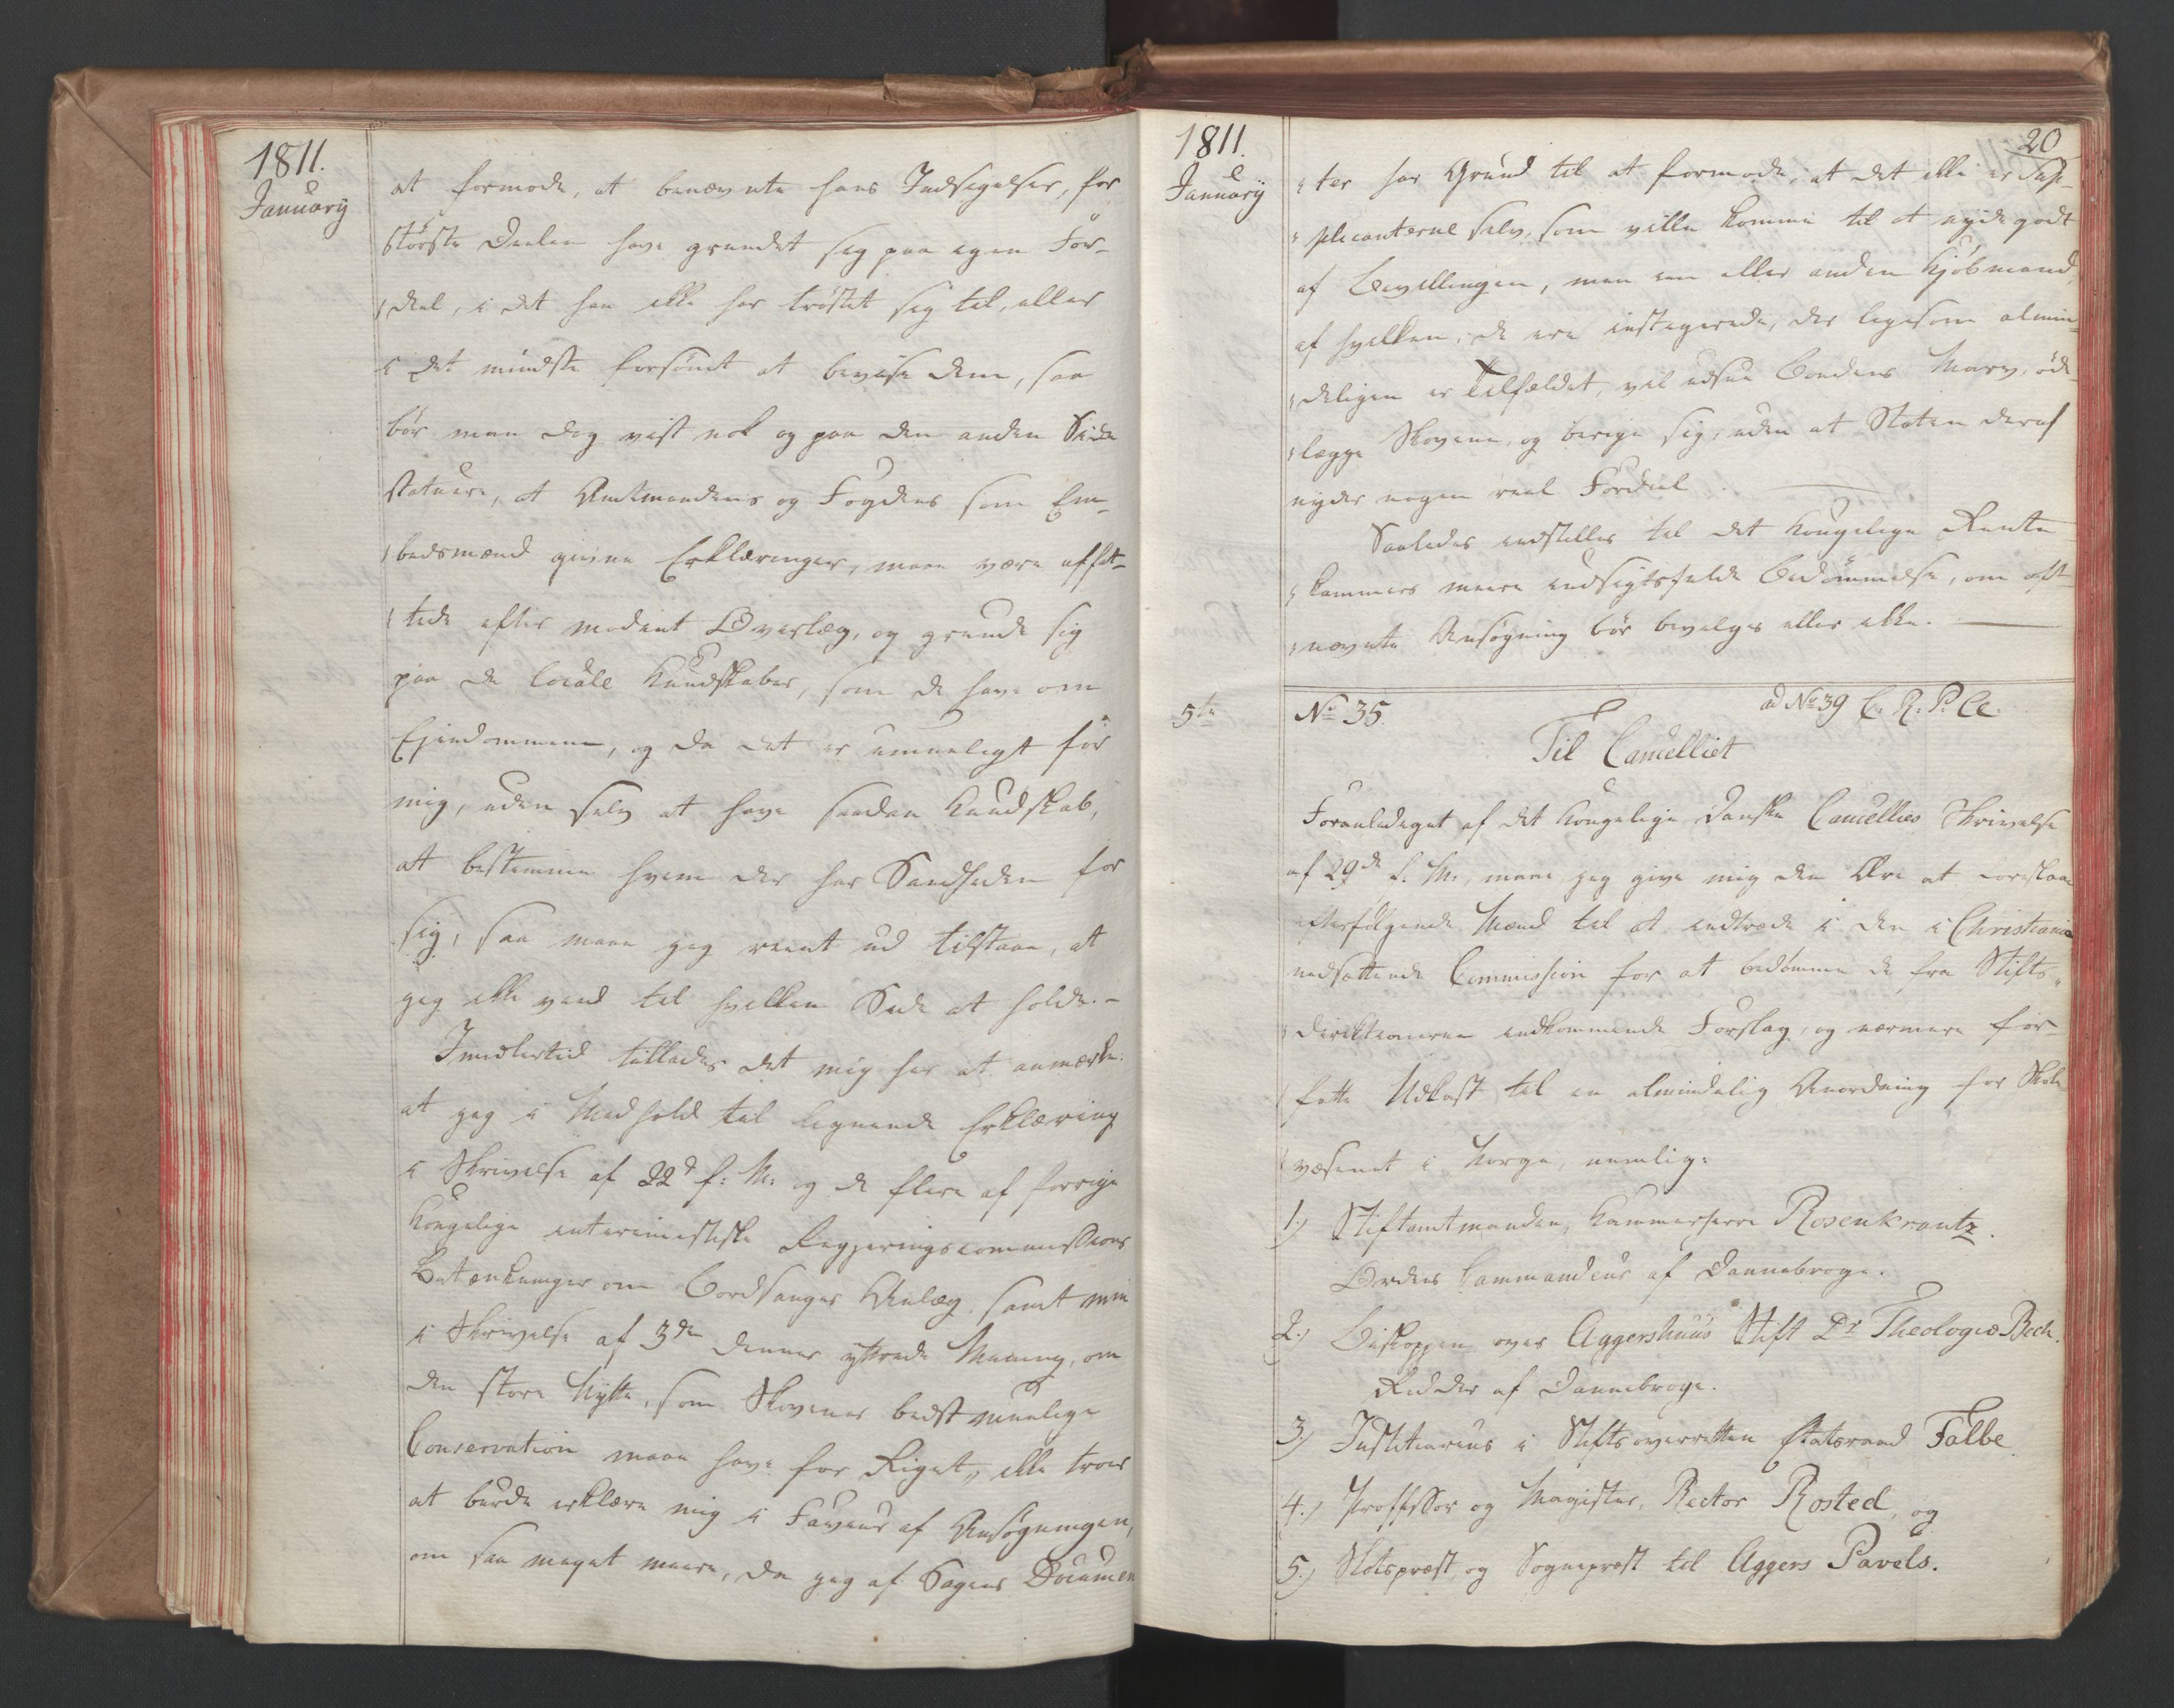 1811.
January
at formode, at benævnte hans Indsigelser, for
största Deelen have grundet sig paa egen For-
deel, i det han ikke har tröstet sig til, eller
i det mindste forsömt at beviise dem, saa
bör man dog vist nok og paa den anden Side
statuere, at Amtmandens og Fogdens som Em-
bedsmænd givne Erklæringer, maae være affat-
tede efter modent Overlæg, og grunde sig
paa de locale Kundskaber, som de have om
Ejendommene, og da det er umueligt for
mig, uden selv at have saadan Kundskab,
at bestemme hvem der har Sandheden for
sig, saa maae jeg reent ud tilstaae, at
jeg ikke veed til hvilken Side at holde. -
Imidlertid tillades det mig her at anmærke.
at jeg i Medhold til lignende Erklæring
i Skrivelse af 22d f: M: og de flere af forrige
Kongelige interimistiske Regjeringscommissions
Betænkninger om Bordsauges Anlæg, samt min
i Skrivelse af 3de dennes yttrede Mening, om
den store Nytte, som Skovenes bedst muelige
Conservation maae have for Riget, ikke troer
at burde erklære mig i Faveur af Ansögningen,
om saa meget meere, da jeg af Sagens Documen
1811.
January
20
ter har Grund til at formode, at det ikke er Sup-
plicanterne selv, som ville komme til at nyde godt
af Bevillingen, men een eller anden Kjöbmand,
af hvilken, de ere instigerede, der ligesom almin-
deligen er Tilfældet, vil udsue Bondens Marv, öde-
lægge Skovene, og berige sig, uden at Staten deraf
nyder nogen reel Fordeel.
Saaledes indstilles til det Kongelige Rente
kammers meere indsigtsfulde Bedömmelse, om oft-
nævnte Ansögning bör bevilges eller ikke.
5te
No 35.
ad No 39 C. R. P. Ce.
Til Cancelliet
Foranlediget af det Kongelige Danske Cancellies Skrivelse
af 29de f. M., maae jeg give mig den Ære at foreslaae
efterfölgende Mænd til at indtræde i den i Christiania
nedsættende Commission for at bedömme de fra Stifts-
direktionerne indkommende Forslag, og nærmere for
fatte Udkast til en almindelig Anordning for Skole
væsenet i Norge, nemlig:
1.) Stiftamtmanden, Kammerherre Rosenkrantz.
Ordens Commandeur af Dannebroge.
2.) Biskoppen over Aggershuus Stift Dr Theologiæ Bech.
Ridder af Dannebroge.
3.) Justitiarius i Stiftsoverretten Etatsraad Falbe.
4.) Professor og Magister, Rector Rosted, og
5.) Slotspræst og Sognepræst til Aggers Pavels.